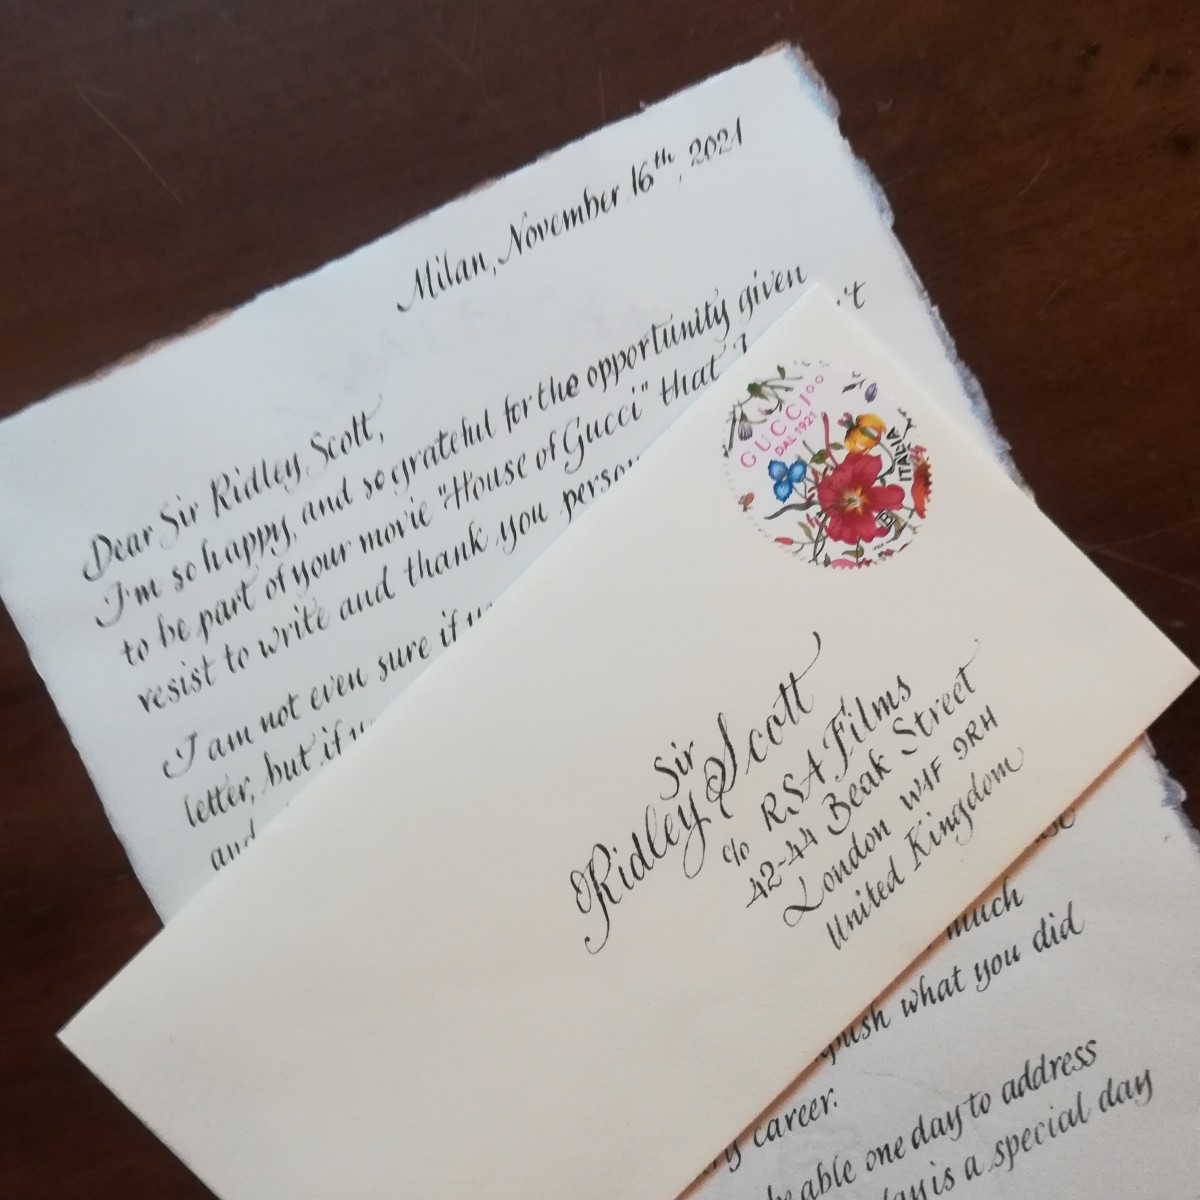 Milan, November 16th, 2021
Dear Sir Ridley Scott,
I'm so happy, and so grateful for the opportunity given
to be part of your movie "House of Gucci" that I 't
resist to write and thank you
I am not even sure if
letter, but if
and
GUCCI 100
DAL 1921
ITALIA
B
Sir
Ridley Scott
c/o RSA Films
42-44 Beak Street
London W1F 9RH
United Kingdom
much
what you did
career.
able one day to address
is a special day